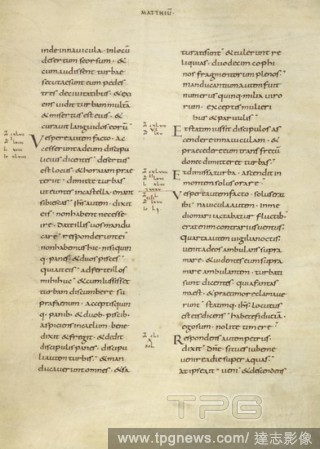 MATTHEU
inde innavicula inlocu
desertum seorsum · &
cum audissent turbae
secutae sunt eum pedes
tres decivitatibus · & ex
iens vidit turbam multā
& misertus est eis · &
curavit languidos eorū
Vespere autem facto · Ac
cesserunt adeum discipu
li eius dicentes desertus
est locus · & hora iam prae
teriit · dimitte turbas
ut euntes incastella emant
sibi escas · ihs autem dixit
eis nonhabent necesse
ire · Date illis vos mandu
care · responderunt ei
nonhabemus hic · nisi quin
q; panes & duos pisces
qui ait eis adferte illos
mihi huc · & cum iussisset
turbam discumbere su
pra fenum · acceptis quin
q; panib; & duob; piscib;
aspiciens in caelum bene
dixit & fregit · & dedit
discipulis panes · discipu
li autem turbis · & man
ducaverunt omnes · & sa
turati sunt · & tulerunt re
liquias · duodecim cophi
nos fragmentorum plenos
manducantium autem fuit
numerus quinq; milia viro
rum · exceptis mulieri
bus & parvulis
Et statim iussit discipulos as
cendere innaviculam · &
praecedere eum trans fretū
donec dimitteret turbas
Et dimissa turba · ascendit in
montem solus orare
Vespere autem facto · solus erat
ibi · navicula autem · in me
dio mari iactabatur fluctib;
erat enim contrarius ventus
Quarta autem vigilia noctis
venit ad eos ambulans supra
mare · & videntes eum supra
mare ambulantem · turbati
sunt dicentes · quia fantas
ma est · & prae timore clamave
runt · statimq; ihs locutus
est eis dicens · habete fiduciā
ego sum · nolite timere
Respondens autem petrus
dixit · Dne · si tu es iube me
venire ad te super aquas
at ipse ait veni · & descendens
TPG
www.tpgnews.com / 達志影像